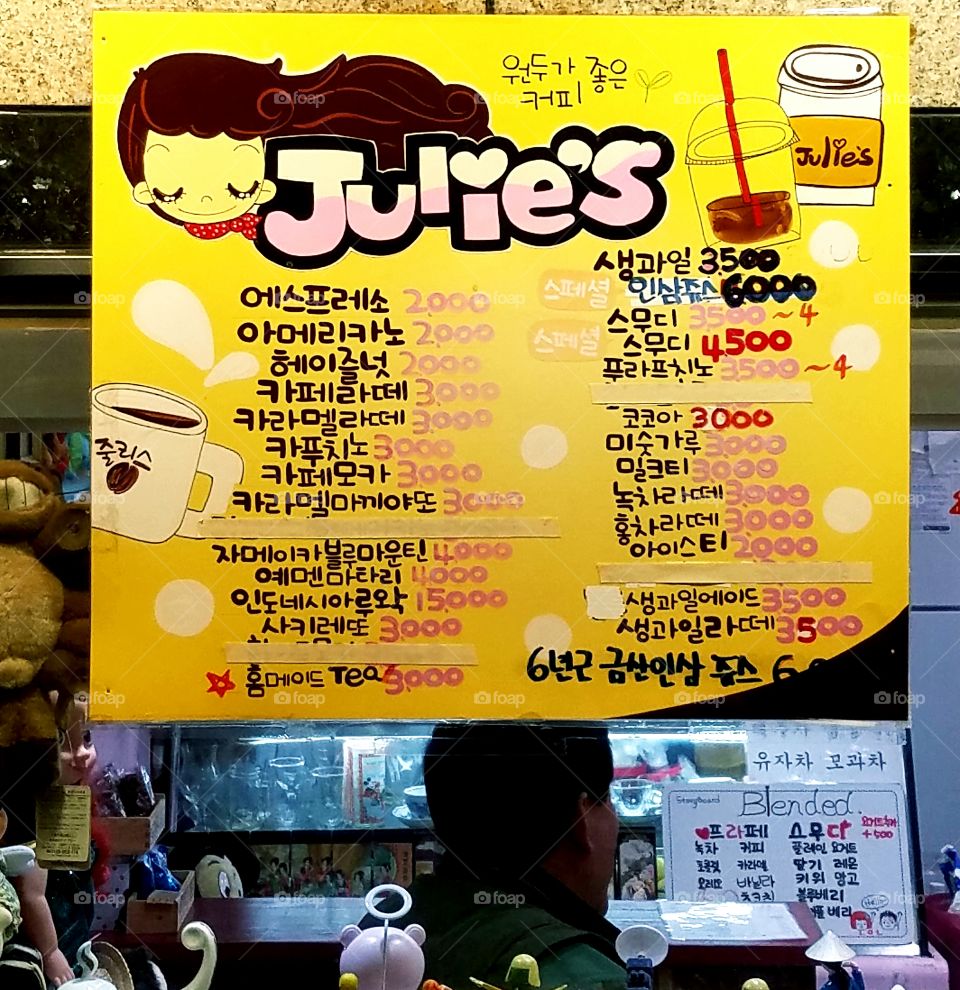 원두가 좋은
커피
Julie's
Julie's
줄리스
에스프레소 2,000
아메리카노 2,000
헤이즐넛 2,000
카페라떼 3,000
카라멜라떼 3,000
카푸치노 3,000
카페모카 3,000
카라멜마끼야또 3,000
자메이카블루마운틴 4,000
예멘마타리 4,000
인도네시아루왁 15,000
사키레또 3,000
홈메이드 Tea 3,000
생과일 3,500
스페셜 인삼쥬스 6,000
스무디 3,500 ~4
스페셜 스무디 4,500
푸라프치노 3,500 ~4
코코아 3000
미숫가루 3,000
밀크티 3000
녹차라떼 3,000
홍차라떼 3,000
아이스티 2,000
생과일에이드 3500
생과일라떼 3500
6년근 금산인삼 쥬스
유자차 모과차
Storyboard
Blended
프라페 스무디
+500
녹차 커피 플레인 요거트
초콜렛 카라멜 딸기 레몬
오레오 바닐라 키위 망고
블루베리
베리
foap